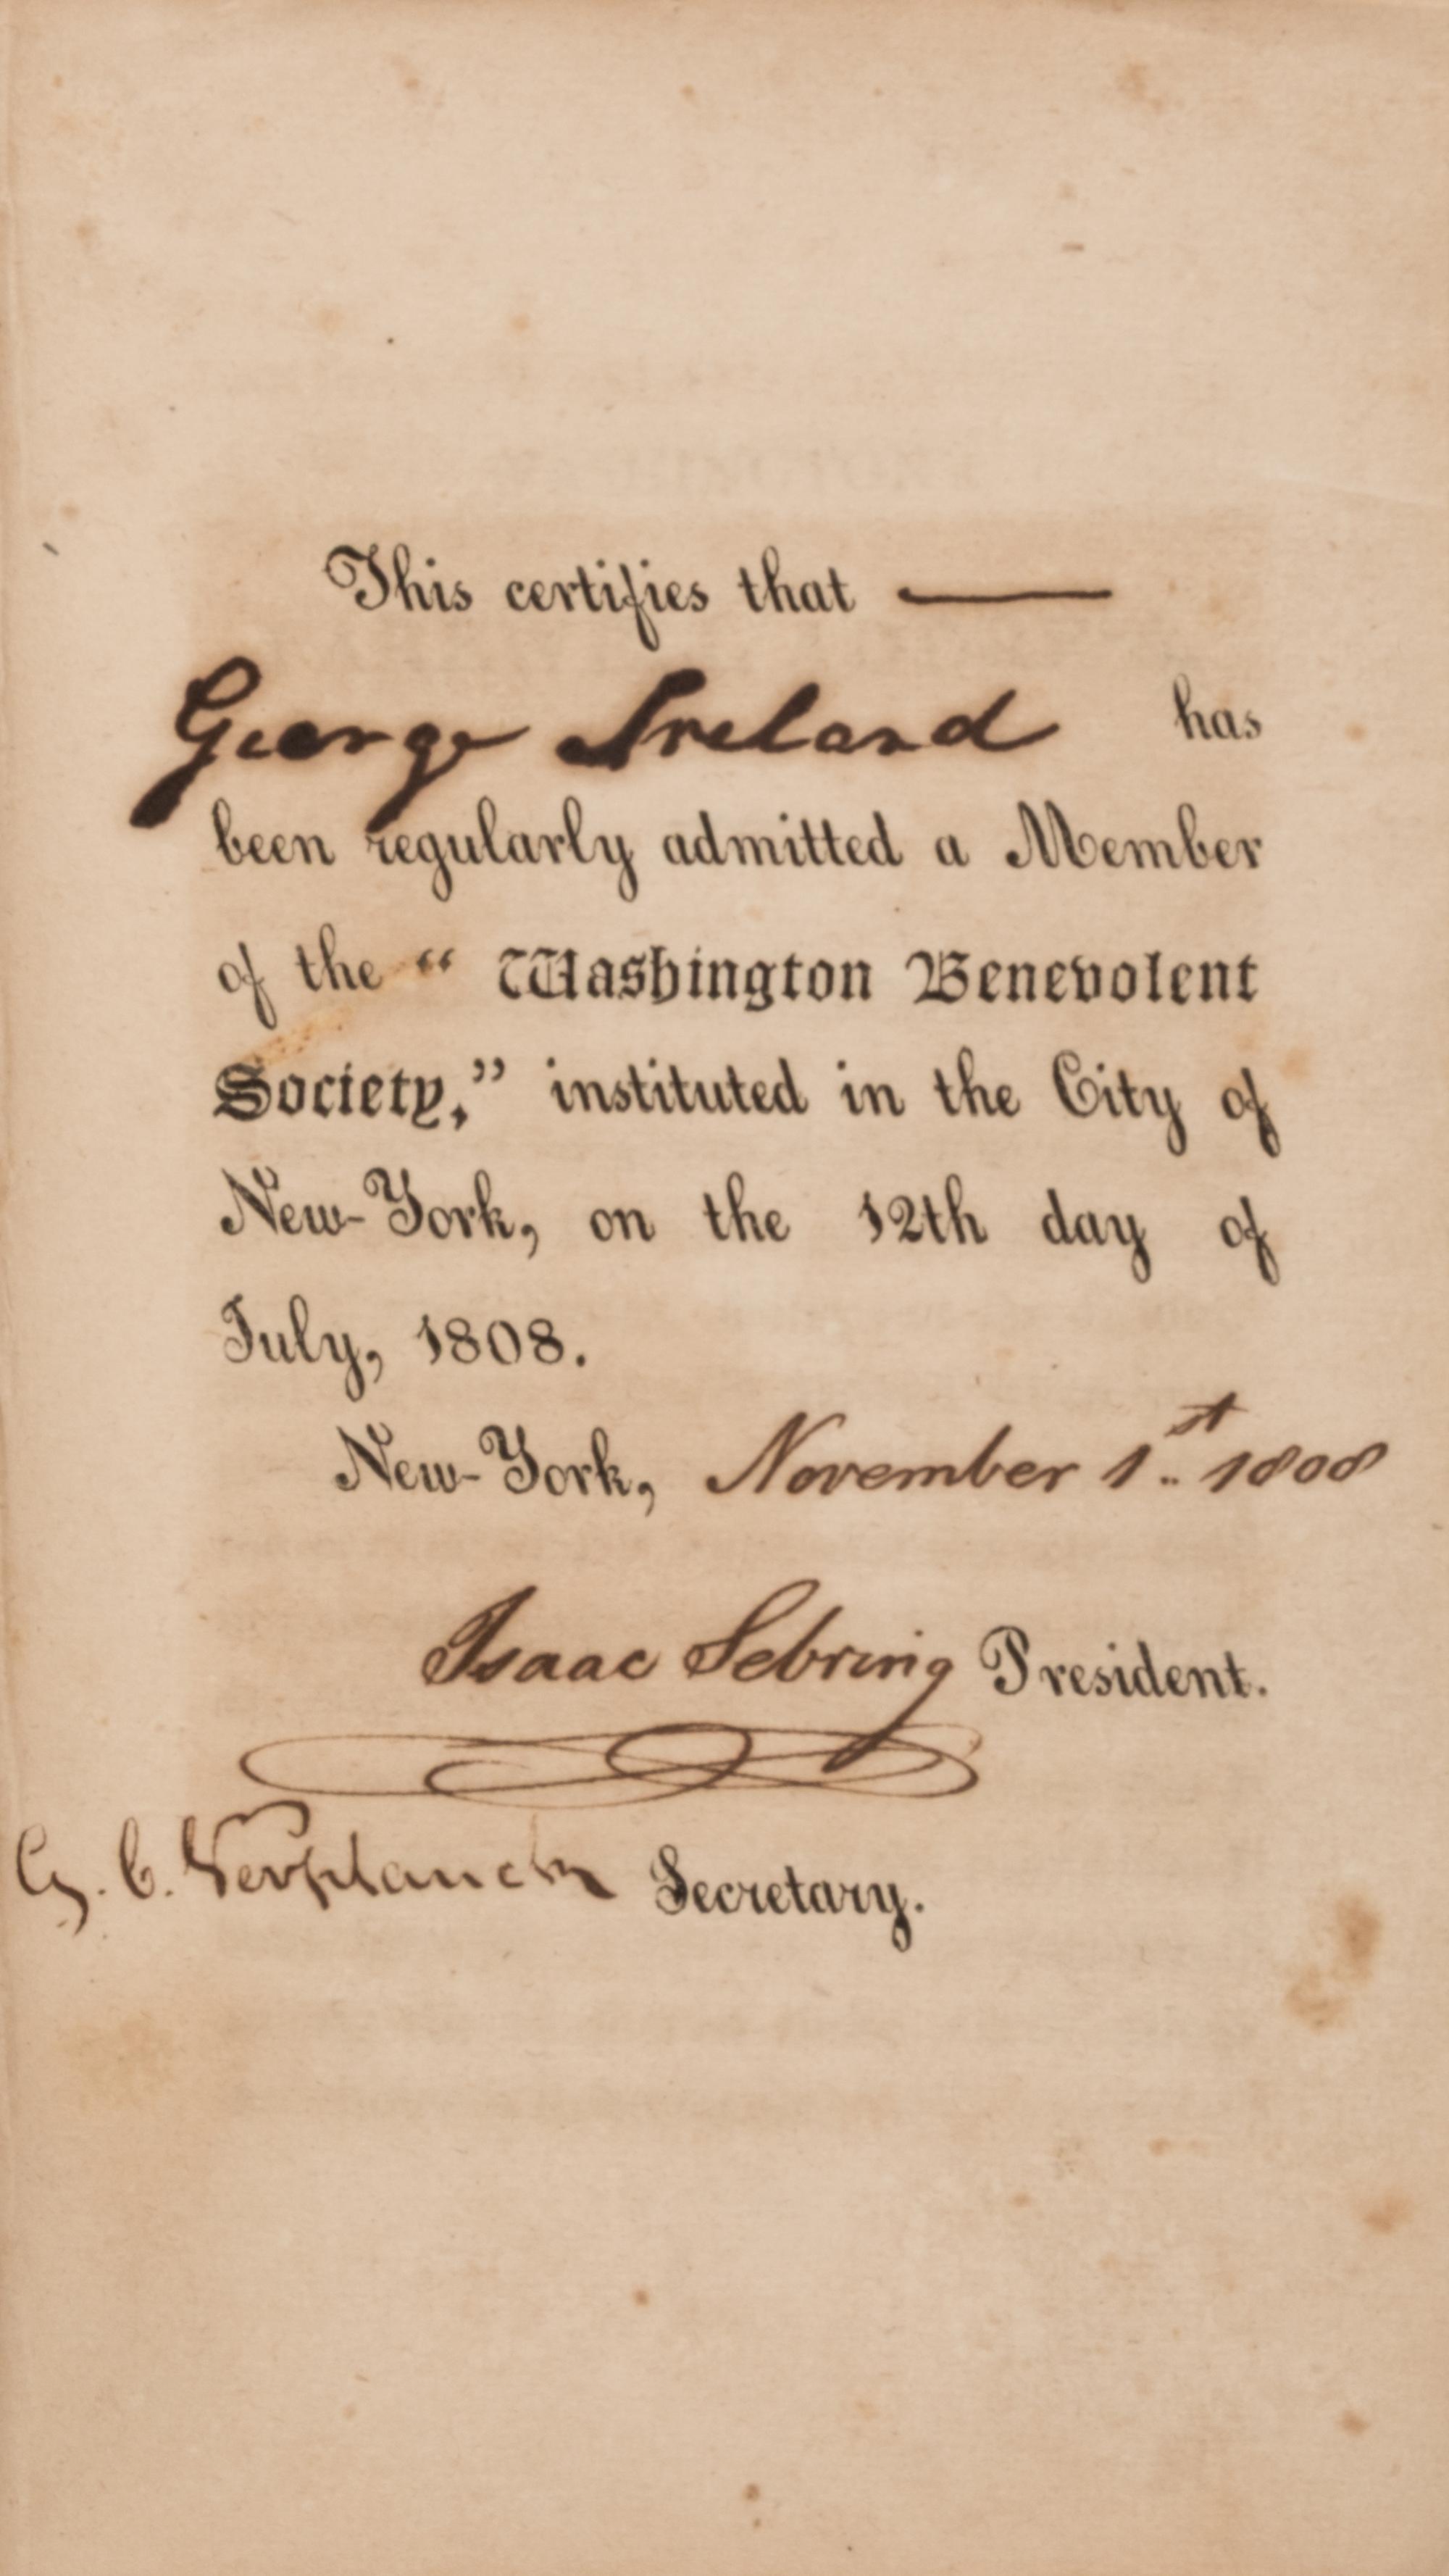 This certifies that —
George Ireland has
been regularly admitted a Member
of the “ Washington Benevolent
Society,” instituted in the City of
New-York, on the 12th day of
July, 1808.
New-York, November 1st 1808
Isaac Sebring President.
G. C. Verplanck Secretary.